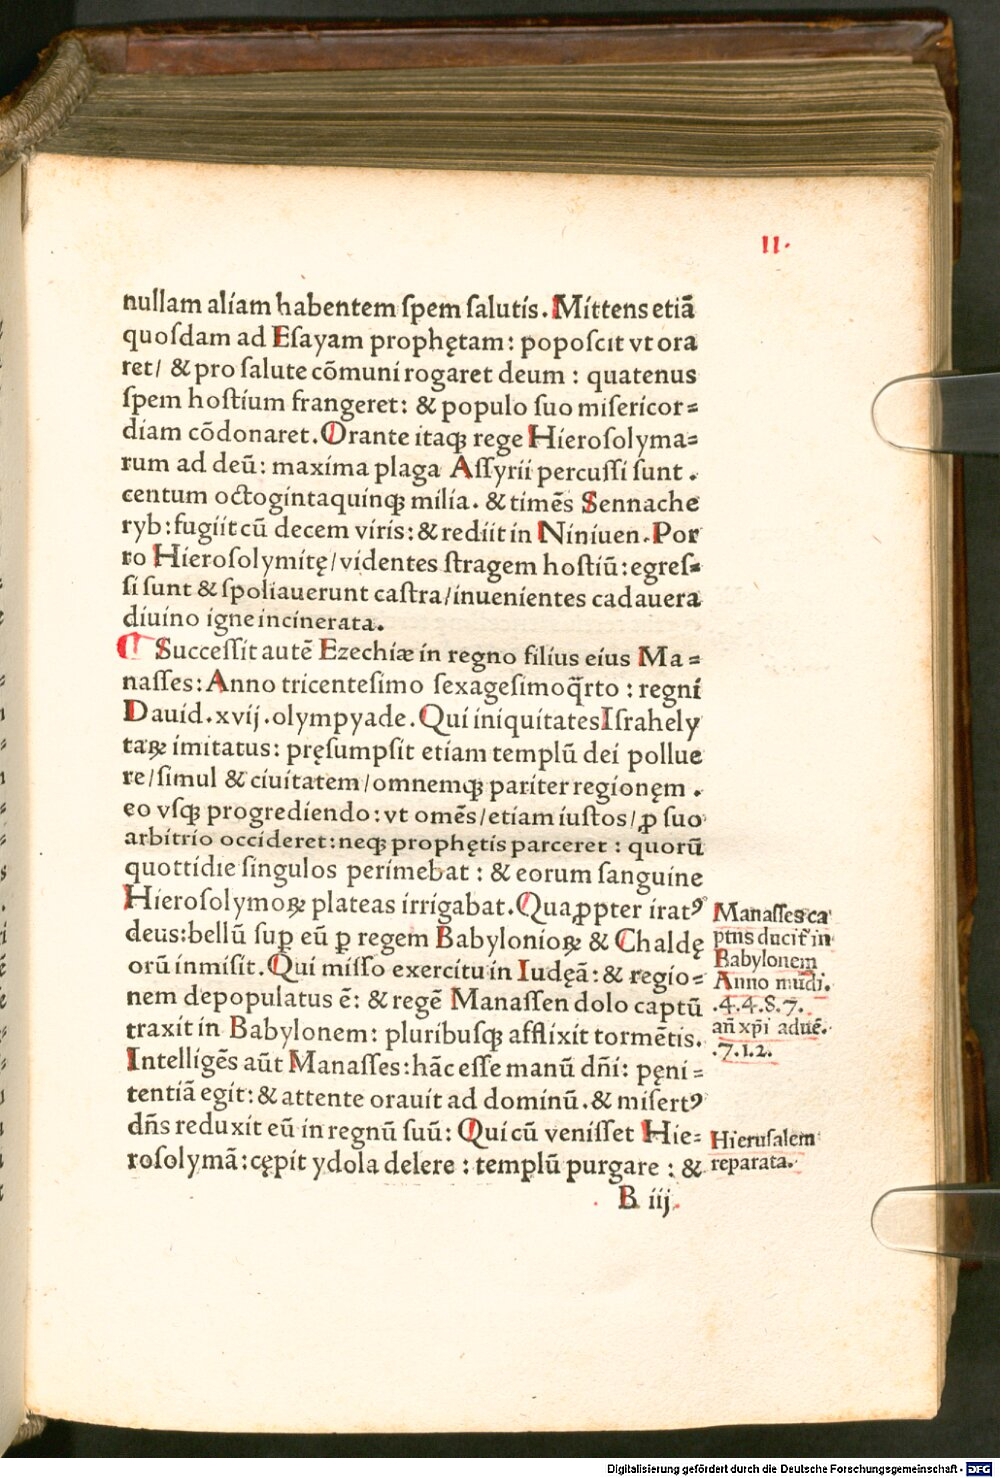 II.
nullam aliam habentem ſpem ſalutis. Mittens etiā
quoſdam ad Eſayam prophętam: popoſcit vt ora
ret/ & pro ſalute cōmuni rogaret deum : quatenus
ſpem hoſtium frangeret: & populo ſuo miſericor=
diam cōdonaret. Orante itaqꝫ rege Hieroſolyma=
rum ad deū: maxima plaga Aſſyrii percuſſi ſunt .
centum octogintaquinqꝫ milia. & timēs Sennache
ryb: fugiit cū decem viris: & rediit in Niniuen. Por
ro Hieroſolymitę/videntes ſtragem hoſtiū: egreſ=
ſi ſunt & ſpoliauerunt caſtra/inuenientes cadauera
diuino igne incinerata.
¶ Succeſſit autē Ezechiæ in regno filius eius Ma=
naſſes: Anno tricenteſimo ſexageſimoq̄rto : regni
Dauid. xvij. olympyade. Qui iniquitates Iſrahely
taꝝ imitatus: pręſumpſit etiam templū dei pollue
re/ſimul & ciuitatem/omnemqꝫ pariter regionęm .
eo vſqꝫ progrediendo: vt omēs/etiam iuſtos/ꝓ ſuo
arbitrio occideret: neqꝫ prophętis parceret : quorū
quottidie ſingulos perimebat : & eorum ſanguine
Hieroſolymoꝝ plateas irrigabat. Quaꝓpter iratꝰ
deus: bellū ſuꝑ eū ꝑ regem Babylonioꝝ & Chaldę
orū inmiſit. Qui miſſo exercitu in Iudęā: & regio=
nem depopulatus ē: & regē Manaſſen dolo captū
traxit in Babylonem: pluribuſqꝫ afflixit tormētis.
Intelligēs aūt Manaſſes: hāc eſſe manū dn̄i: pęni=
tentiā egit: & attente orauit ad dominū. & miſertꝰ
dn̄s reduxit eū in regnū ſuū: Qui cū veniſſet Hie=
roſolymā: cępit ydola delere : templū purgare : &
B iij.
Manaſſes ca
ptus ducit᷑ in
Babylonem
Anno mūdi.
.4.4.8.7.
an̄ xp̄i aduē.
.7.1.2.
Hieruſalem
reparata.
Digitalisierung gefördert durch die Deutsche Forschungsgemeinschaft - DFG